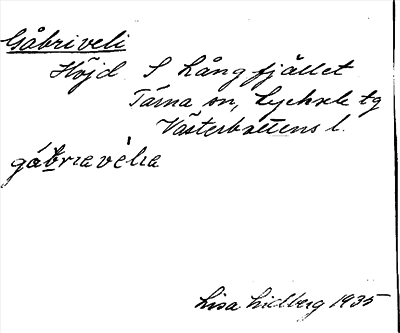 Gåbriveli
Höjd S Långfjället
Tärna sn, Lycksele tg
Västerbottens l.
gábrıavèlıa
Lisa Lidberg 1935